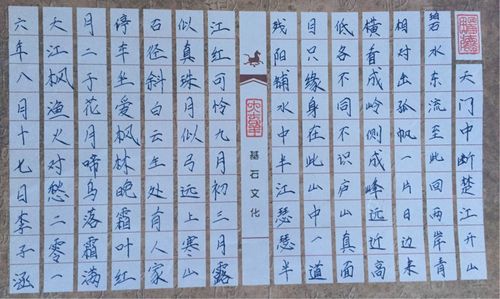 天门中断楚江开山
碧水东流至此回两岸青
相对出孤帆一片日边来
横看成岭侧成峰远近高
低各不同不识庐山真面
目只缘身在此山中一道
残阳铺水中半江瑟瑟半
基石文化
江红可怜九月初三月露
似真珠月似弓远上寒山
石径斜白云生处有人家
停车坐爱枫林晚霜叶红
月二子花月啼乌落霜满
大江枫渔火对愁二零一
六年八月十七日李子涵